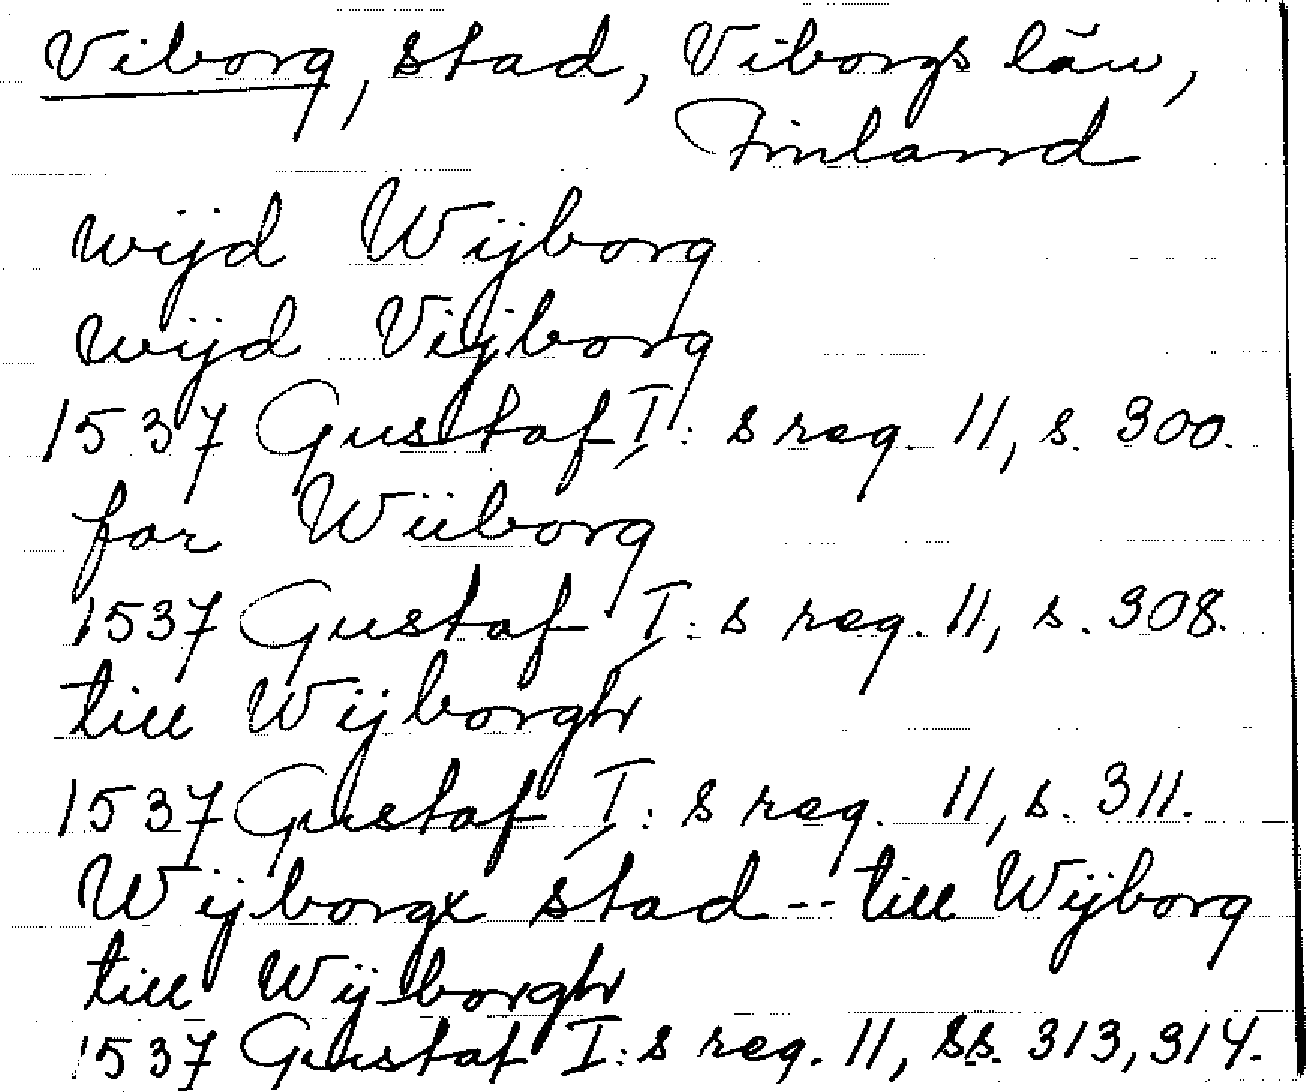 Viborg, stad, Viborgs län,
Finland
wijd Wijborg
wijd Vijborg
1537 Gustaf I:s reg. 11, s. 300.
for Wiiborg
1537 Gustaf I:s reg. 11, s. 308.
till Wijborgh
1537 Gustaf I:s reg. 11, s. 311.
Wijborgx stad -- till Wijborg
till Wijborgh
1537 Gustaf I:s reg. 11, ss. 313, 314.